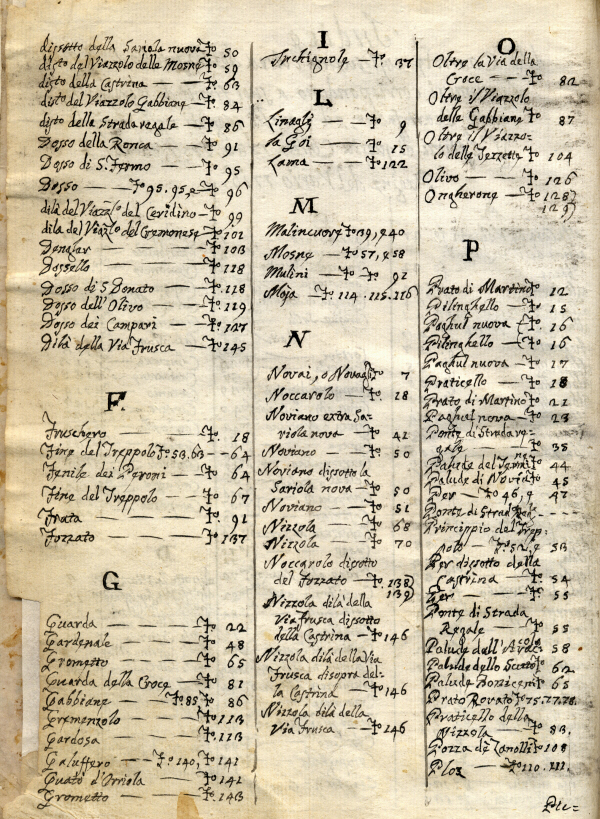 disotto della Sariola nuova Fo 50
disto del Viazzolo delle Mosne Fo 59
disto della Castrina — Fo 63
disto del Viazzolo Gabbiane — Fo 84
disto della Strada regale — Fo 86
Dosso della Ronca — Fo 91
Dosso di S. Fermo — Fo 95
Dosso — Fo 95. 95, e Fo 96
dilà del Viazzlo del Ceridino — Fo 99
dila del Viazlo del Cremonese — Fo 101
Dengiar — Fo 103
Dossello — Fo 118
Dosso di S Donato — Fo 118
Dosso dell'Olivo — Fo 119
Dosso dei Campari — Fo 127
Dilà della Via Frusca — Fo 145
F.
Fruschero — Fo 18
Fine del Treppolo Fo 53, 63 — 64
Fenile dei Peroni — Fo 64
Fine del Treppolo — Fo 67
Frata — Fo 91
Fozzato — Fo 137
G
Guarda — Fo 22
Gardenale — Fo 48
Grometto — Fo 65
Guarda della Croce — Fo 81
Gabbiane — Fo 85, Fo 86
Gremenzolo — Fo 113
Gardosa — Fo 113
Galuffero — Fo 140, Fo 141
Guato d'Orriola — Fo 141
Grometto — Fo 143
I
Irchignole — Fo 37
L
Linagli — Fo 9
la Goi — Fo 15
Lama — Fo 122
M
Malincuore Fo 39, e 40
Mosne — Fo 57, e 58
Mulini — Fo Fo 91
Moja — Fo 114 . 115. 116
N
Novai, o Novagli Fo 7
Noccarolo — Fo 18
Noviano extra Sa-
riola nova — Fo 41
Noviano — Fo 50
Noviano dissotto la
Sariola nova — Fo 50
Noviano — Fo 51
Nizzola — Fo 68
Nizzola — Fo 70
Noccarolo disotto
del Fozzato — Fo 138
139
Nizzola dilà della
Via frusca disotto
della Castrina — Fo 146
Nizzola dilà della Via
Frusca disopra del-
la Castrina — Fo 146
Nizzola dilà della
Via frusca — Fo 146
O
Oltre la Via della
Croce — Fo 82
Oltre il Viazzolo
delle Gabbiane Fo 87
Oltre il Viazzo-
lo delle Tezzette Fo 104
Olivo — Fo 126
Ongherone — Fo 128
129
P
Prato di Martino Fo 12
Pilinghello — Fo 15
Paghul nuova — Fo 16
Pilinghello — Fo 16
Paghul nuova — Fo 17
Praticello — Fo 18
Prato di Martino Fo 21
Paghul nova — Fo 23
Ponte di Strada re-
gale — Fo 35
Palude del Fo 44
Palude di Fo 45
Per — Fo 46, e 47
Ponte di Strad
Princippio del Trep-
polo — Fo 52, e 53
Per dissotto della
Castrina — Fo 54
Per — Fo 55
Ponte di Strada
Regale — Fo 55
Palude dell' Fo 58
Palude dello Fo 62
Palude Fo 65
Prato Rovato Fo 75. 77. 78.
Praticello della
Nizzola — Fo 83.
Pozza de Zanolli Fo 108
Plos — Fo 110 . 111.
Ple=